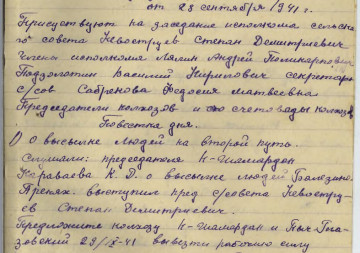 от 28 сентября 1941 г.
Присутствуют на заседание исполкома сельско
го совета Невоструев Степан Демитриевич
Члены исполкома Лялин Андрей Поликарпович
Поздолотин Василий Кирилович секретарь
с/сов Сабренова Федосия Матвеевна
Председатели колхозов и счетоводы колхозов
Повестка дня.
1) О высылке людей на второй путь.
Слушали: председателя Н-Шамардан
Караваева К. Д. о высылке людей Балезино.
Прениях. выступил пред с/совета Невостру-
ев Степан Демитриевич.
Предложите колхозу Н-Шамардан и
зовский 29/IX-41 вывезти рабочию силу